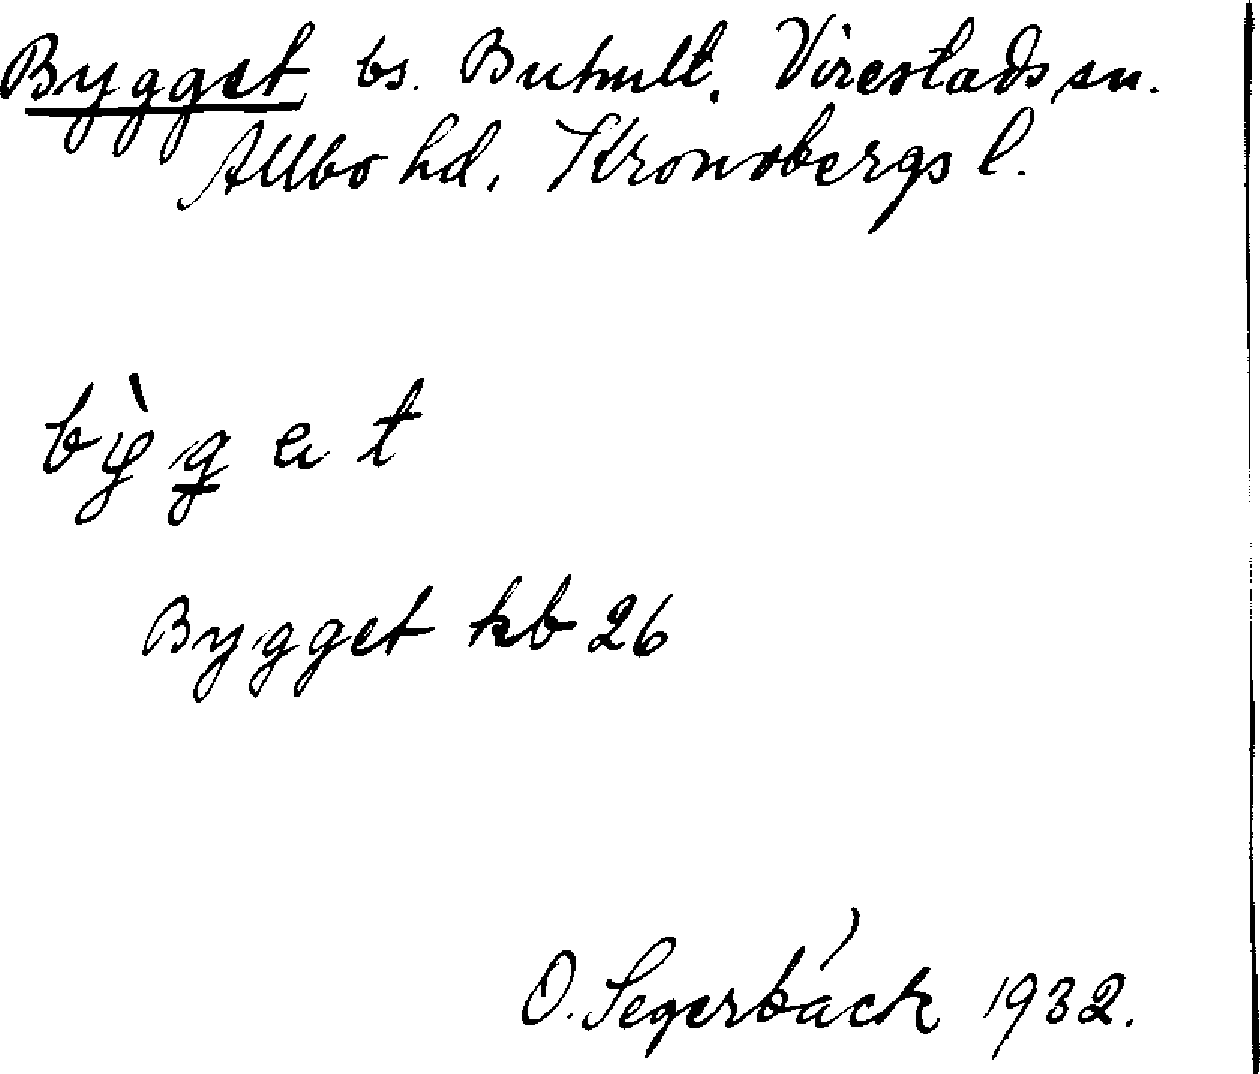 Bygget, bs. Buhult, Virestads sn.
Allbo hd, Kronobergs l.
bỳg et
Bygget kb 26
O. Segerbäck 1932.